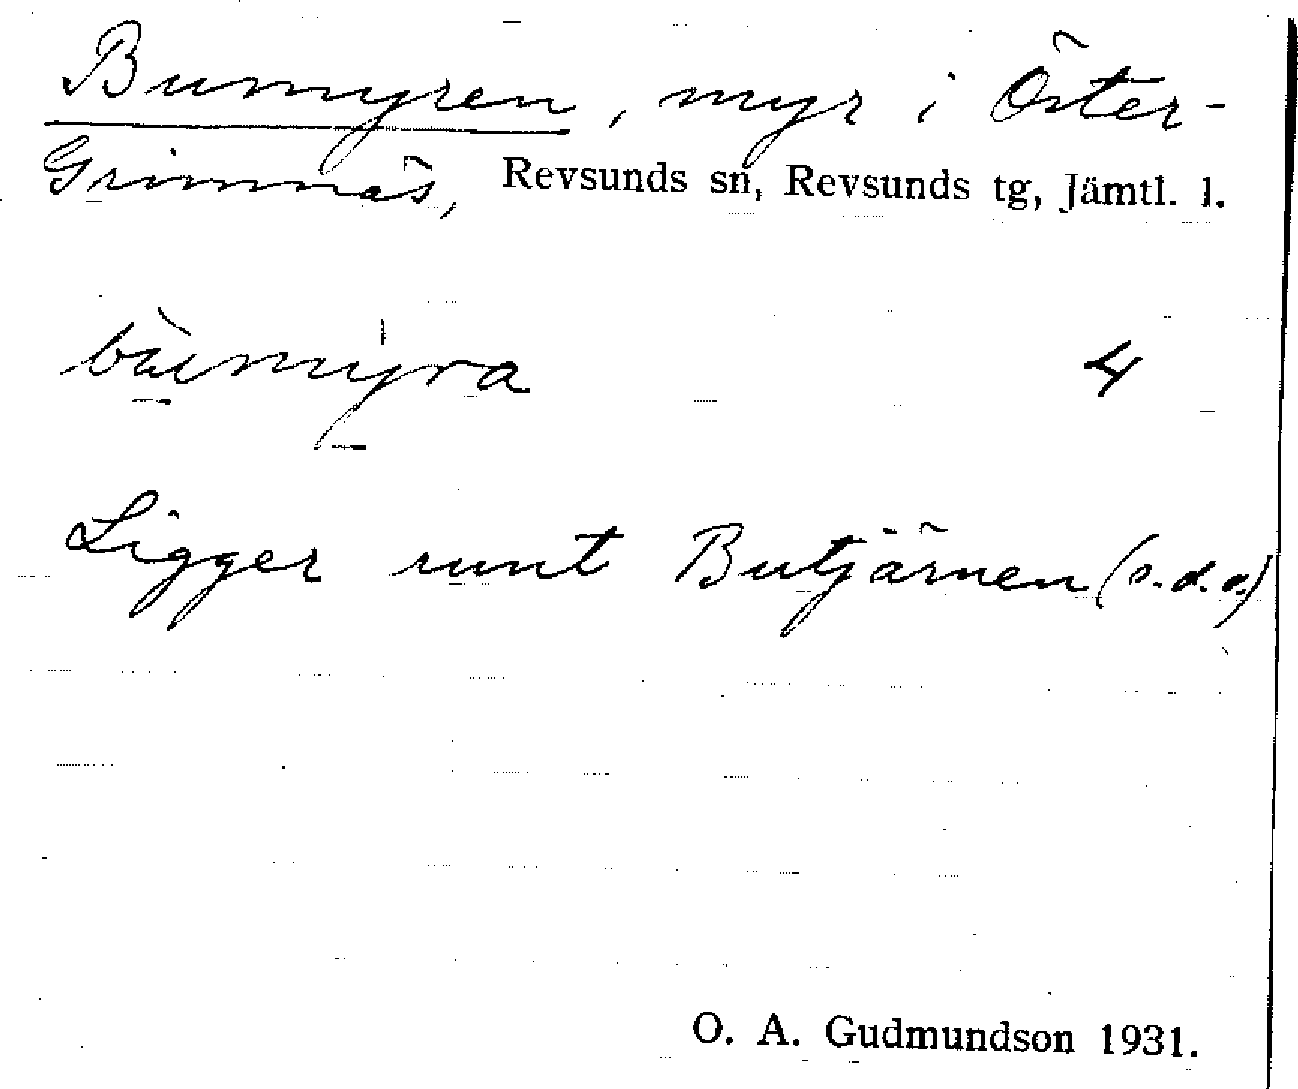 Bumyren, myr i Öster-
Grimnäs, Revsunds sn, Revsunds tg, Jämtl. l.
bùmyra 4
Ligger runt Butjärnen (s.d.o)
O. A. Gudmundson 1931.